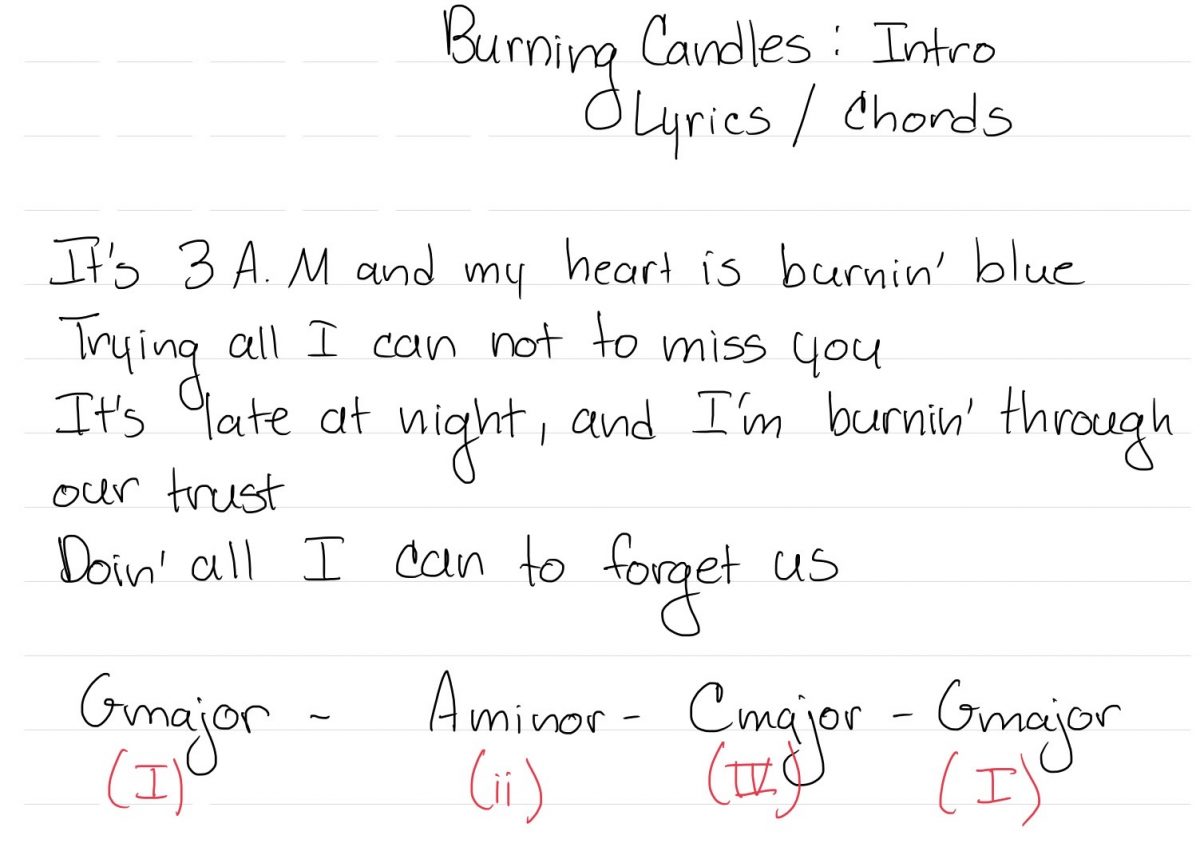 Burning Candles: Intro
Lyrics / Chords
It's 3 A.M and my heart is burnin' blue
Trying all I can not to miss you
It's late at night, and I'm burnin' through
our trust
Doin' all I can to forget us
Gmajor - Aminor - Cmajor - Gmajor
(I) (ii) (IV) (I)